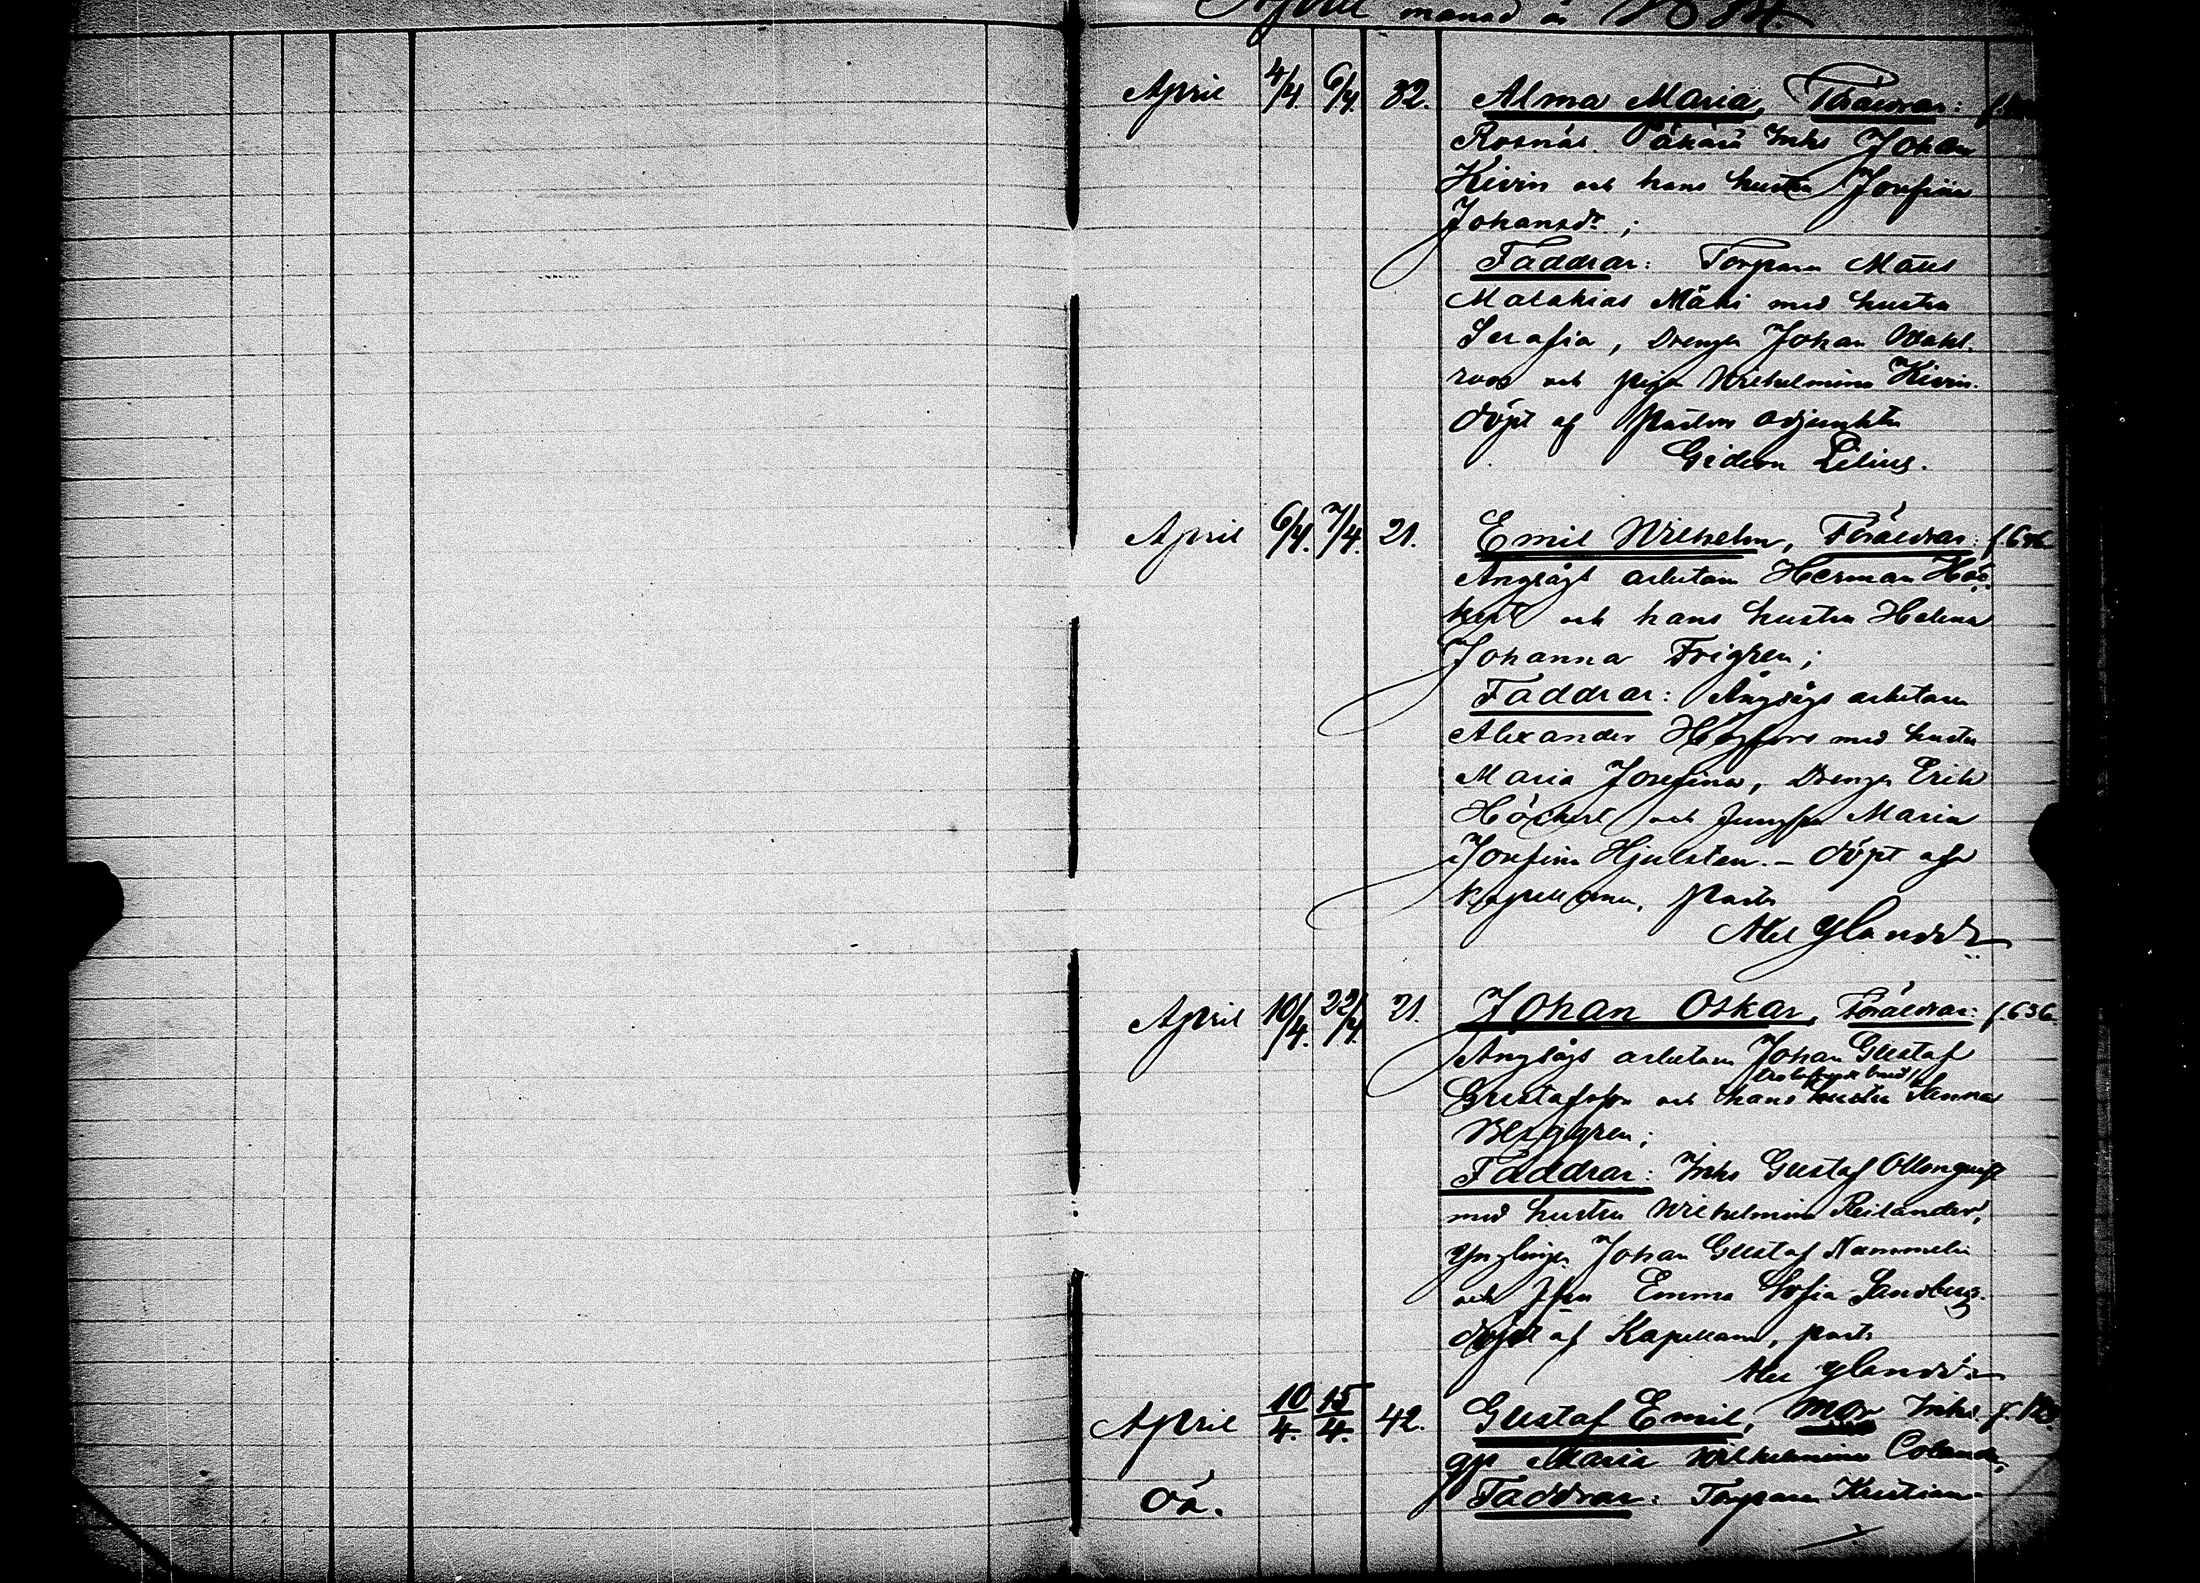 April månad år 1884
April 4/4 6/4. 32. Alma Maria, Föräldrar:
Rosnäs. Påkärä Inhs Johan
Kivin och hans hustru Josefina
Johansdr;
Faddrar: Torparen Matts
Malakias Mäki med hustru
Serafia, Drengen Johan Wahl-
roos och pigan Wilhelmina Kivin.
döpt af Pastors adjunkten
Gideon Lilius.
April 6/4. 7/4. 21. Emil Wilhelm, Föräldrar:
Ångsågs arbetaren Herman Höc-
kert och hans hustru Helena
Johanna Frigren;
Faddrar: Ångsågs arbetaren
Alexander Högfors med hustru
Maria Josefina, Drengen Erik
Höckert och Jungfru Maria
Josefina Hjulsten. – döpt af
Kapellanen, Pastor
Axel Ylander
April 10/4. 22/4. 21. Johan Oskar, Föräldrar: f. 636.
Ångsågs arbetaren Johan Gustaf
Gustafsson och hans hustru Sanna
Berggren;
Faddrar: Inhs Gustaf Ollonqvist
med hustru Wilhelmina Reilander,
Ynglingen Johan Gustaf Nummelin
och Jfrun Emma Sofia Sandberg.
döpt af Kapellanen, past.
Axel Ylander
April 10/4. 15/4. 42. Gustaf Emil, mor Inhs.
gp Maria Wilhelmina Colander,
Oä. Faddrar: Torparen Kristian